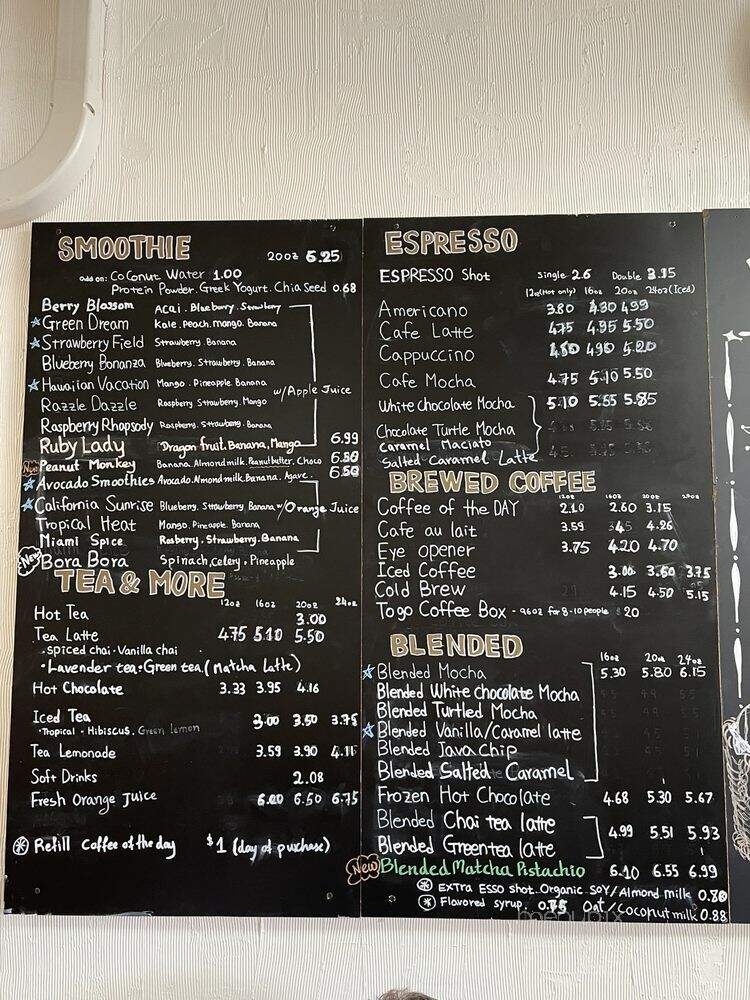 SMOOTHIE 20oz 6.25
add on: Coconut Water 1.00
Protein Powder. Greek Yogurt. Chia Seed 0.68
Berry Blossom Acai. Blueberry. Strawberry
Green Dream Kale. Peach. Mango. Banana
Strawberry Field Strawberry. Banana
Blueberry Bonanza Blueberry. Strawberry. Banana
Hawaiian Vacation Mango. Pineapple. Banana
w/Apple Juice
Razzle Dazzle Raspberry. Strawberry. Mango
Raspberry Rhapsody Raspberry. Strawberry. Banana
Ruby Lady Dragon fruit. Banana. Mango 6.99
New Peanut Monkey Banana. Almondmilk. Peanutbutter. Choco 6.80
Avocado Smoothies Avocado. Almondmilk. Banana. Agave. 6.50
California Sunrise Blueberry. Strawberry. Banana w/Orange Juice
Tropical Heat Mango. Pineapple. Banana
Miami Spice Rasberry. Strawberry. Banana
New Bora Bora Spinach, Celery. Pineapple
TEA & MORE
12oz 16oz 20oz 24oz
Hot Tea 3.00
Tea Latte 4.75 5.10 5.50
• Spiced chai • Vanilla chai
• Lavender tea • Green tea (Matcha Latte)
Hot Chocolate 3.33 3.95 4.16
Iced Tea 3.00 3.50 3.75
• Tropical • Hibiscus. Green lemon
Tea Lemonade 3.59 3.90
Soft Drinks 2.08
Fresh Orange Juice 6.00 6.50 6.75
Refill Coffee of the day $1 (day of purchase)
ESPRESSO
ESPRESSO Shot Single 2.6 Double 3.15
12oz(Hot only) 16oz 20oz 24oz(Iced)
Americano 3.80 4.30 4.99
Cafe Latte 4.75 4.95 5.50
Cappuccino 4.50 4.90 5.20
Cafe Mocha 4.75 5.10 5.50
White chocolate Mocha 5.10 5.55 5.85
Chocolate Turtle Mocha
Caramel Maciato
Salted Caramel Latte
BREWED COFFEE
12oz 16oz 20oz 24oz
Coffee of the DAY 2.10 2.60 3.15
Cafe au lait 3.59 3.45 4.26
Eye opener 3.75 4.20 4.70
Iced Coffee 3.00 3.50 3.75
Cold Brew 4.15 4.50 5.15
To go Coffee Box - 96oz for 8-10 people $20
BLENDED
16oz 20oz 24oz
Blended Mocha 5.30 5.80 6.15
Blended White chocolate Mocha
Blended Turtled Mocha
Blended Vanilla/Caramel latte
Blended Java chip
Blended Salted Caramel
Frozen Hot Chocolate 4.68 5.30 5.67
Blended Chai tea latte
4.99 5.51 5.93
Blended Greentea latte
New Blended Matcha Pistachio 6.10 6.55 6.99
Extra Esso shot. Organic Soy/Almond milk 0.80
Flavored syrup. 0.75 Oat/Coconut milk 0.88